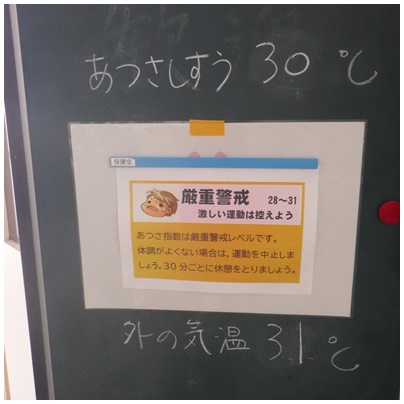 あつさしすう 30℃
保健室
厳重警戒 28～31
激しい運動は控えよう
あつさ指数は厳重警戒レベルです。
体調がよくない場合は、運動を中止しま
しょう。30分ごとに休憩をとりましょう。
外の気温 31℃